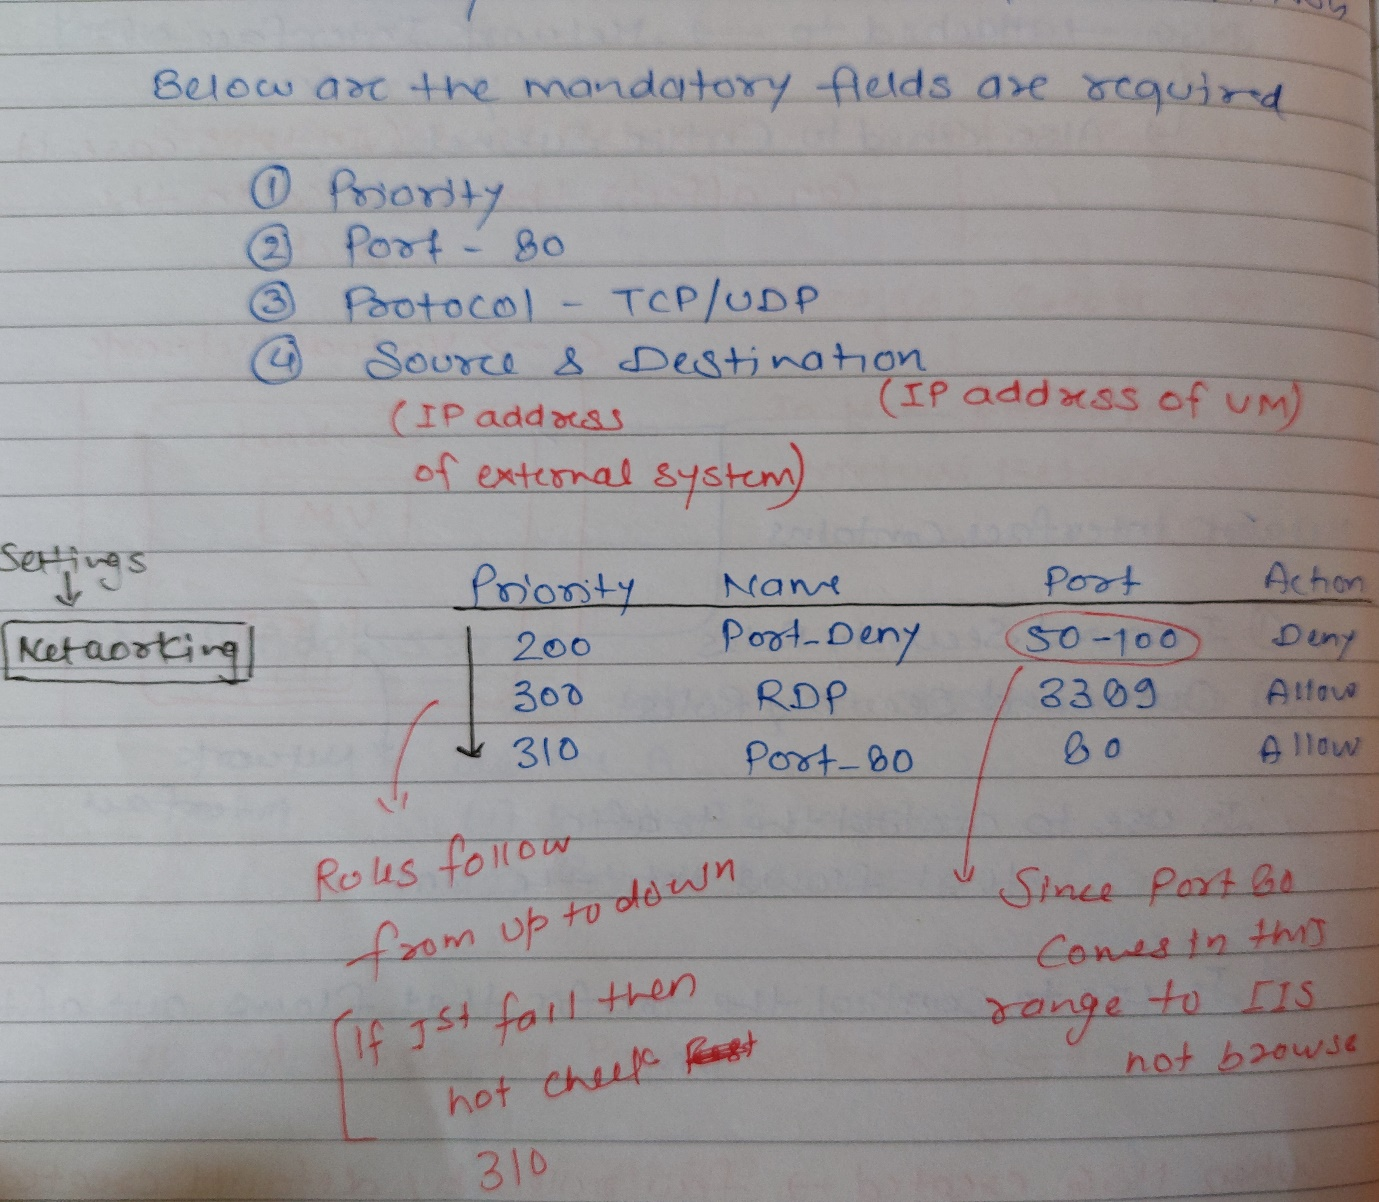 Below are the mandatory fields are required
① Priority
② Port - 80
③ Protocol - TCP/UDP
④ Source & Destination
(IP address of external system)
(IP address of VM)
Settings
Networking
Priority Name Port Action
200 Port-Deny 50-100 Deny
300 RDP 3389 Allow
310 Port-80 80 Allow
Rules follow
from up to down
If 1st fail then
not check
310
Since Port 80
Comes in this
range to IIS
not browse